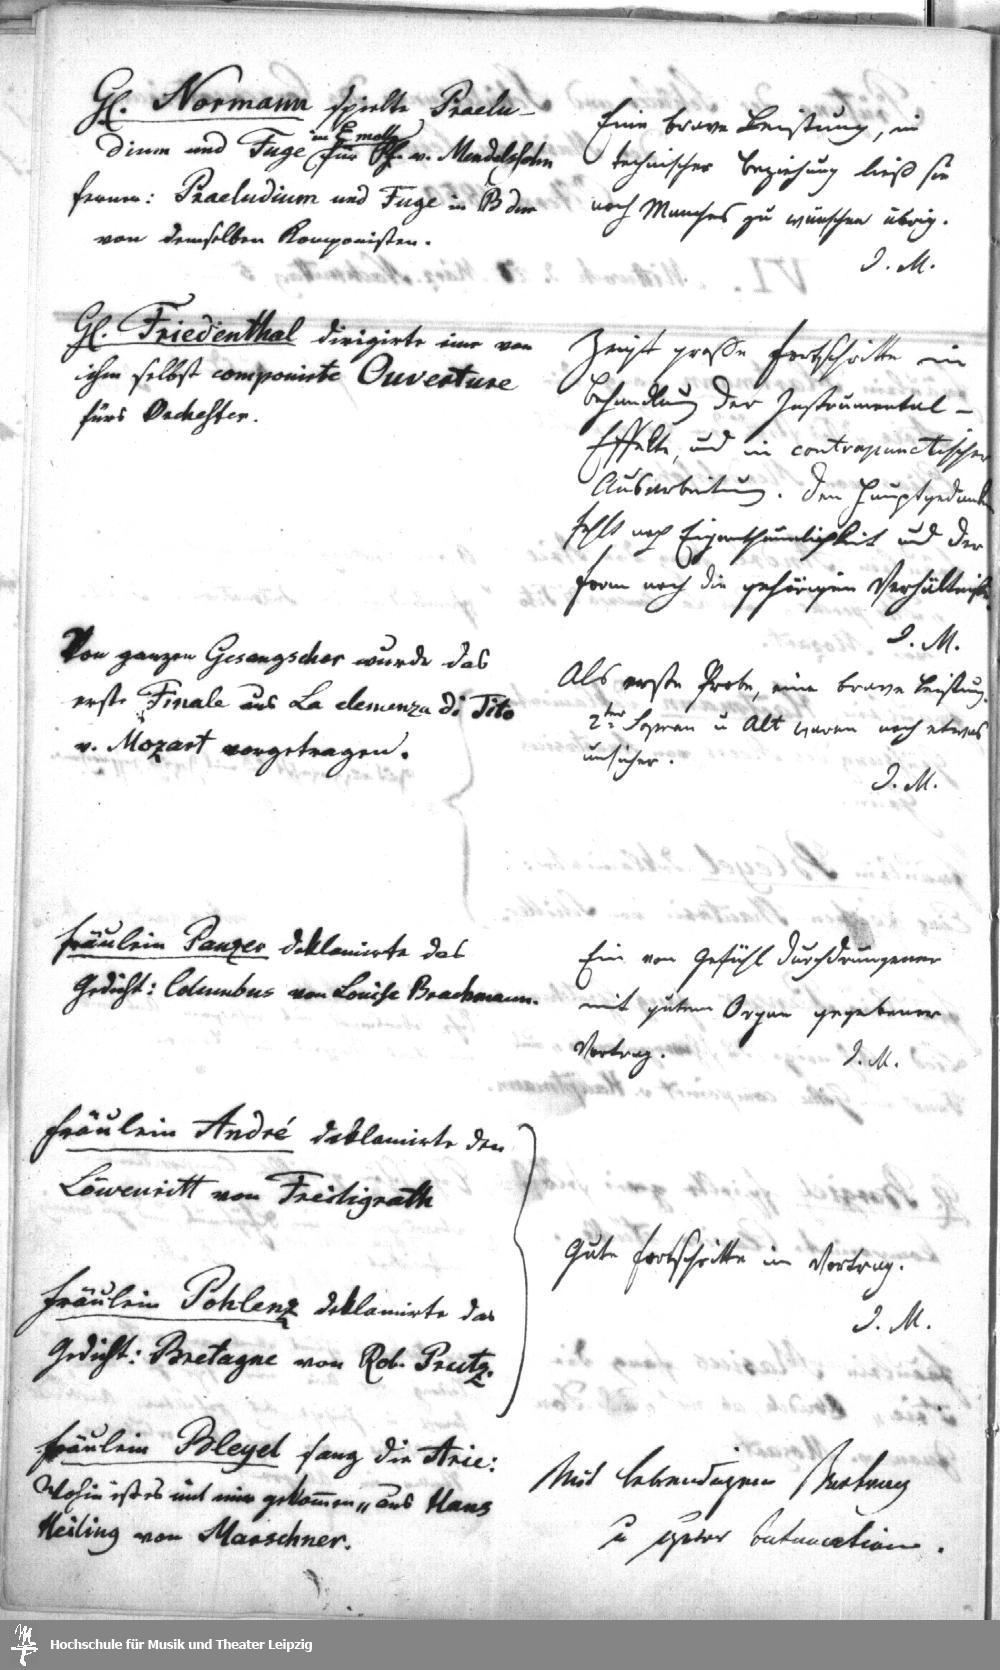 Hl. Normann spielte Praelu-
dium und Fuge in E moll für Pf. v. Mendelssohn
ferner: Praeludium und Fuge in B dur
von demselben Komponisten.
Eine brave Leistung, in
technischer Beziehung ließ sie
noch Manches zu wünschen übrig.
I. M.
Hl. Friedenthal dirigirte eine von
ihm selbst componirte Ouverture
fürs Orchester.
Zeigt große Fortschritte in
Behandlung der Instrumental-
Effekte, und in contrapunctischer
Ausarbeitung. Den Hauptgedanken
fehlt noch Eigenthümlichkeit und der
Form noch die gehörigen Verhältnisse.
I. M.
Von ganzen Gesangschor wurde das
erste Finale aus La clemenza di Tito
v. Mozart vorgetragen.
Als erste Probe, eine brave Leistung.
2ter Sopran u Alt waren noch etwas
unsicher.
I. M.
Fräulein Panzer deklamirte das
Gedicht: Columbus von Louise Brachmann.
Ein von Gefühl durchdrungener
mit gutem Organ gegebener
Vortrag.
I. M.
Fräulein André deklamirte den
Löwenritt von Freiligrath
Fräulein Pohlenz deklamirte das
Gedicht: Bretagne von Rob. Prutz.
Gute Fortschritte im Vortrag.
I. M.
Fräulein Bleyel sang die Arie:
Wohin ist es mit mir gekommen„ aus Hans
Heiling von Marschner.
Mit lebendigem
u guter Intonation.
Hochschule für Musik und Theater Leipzig